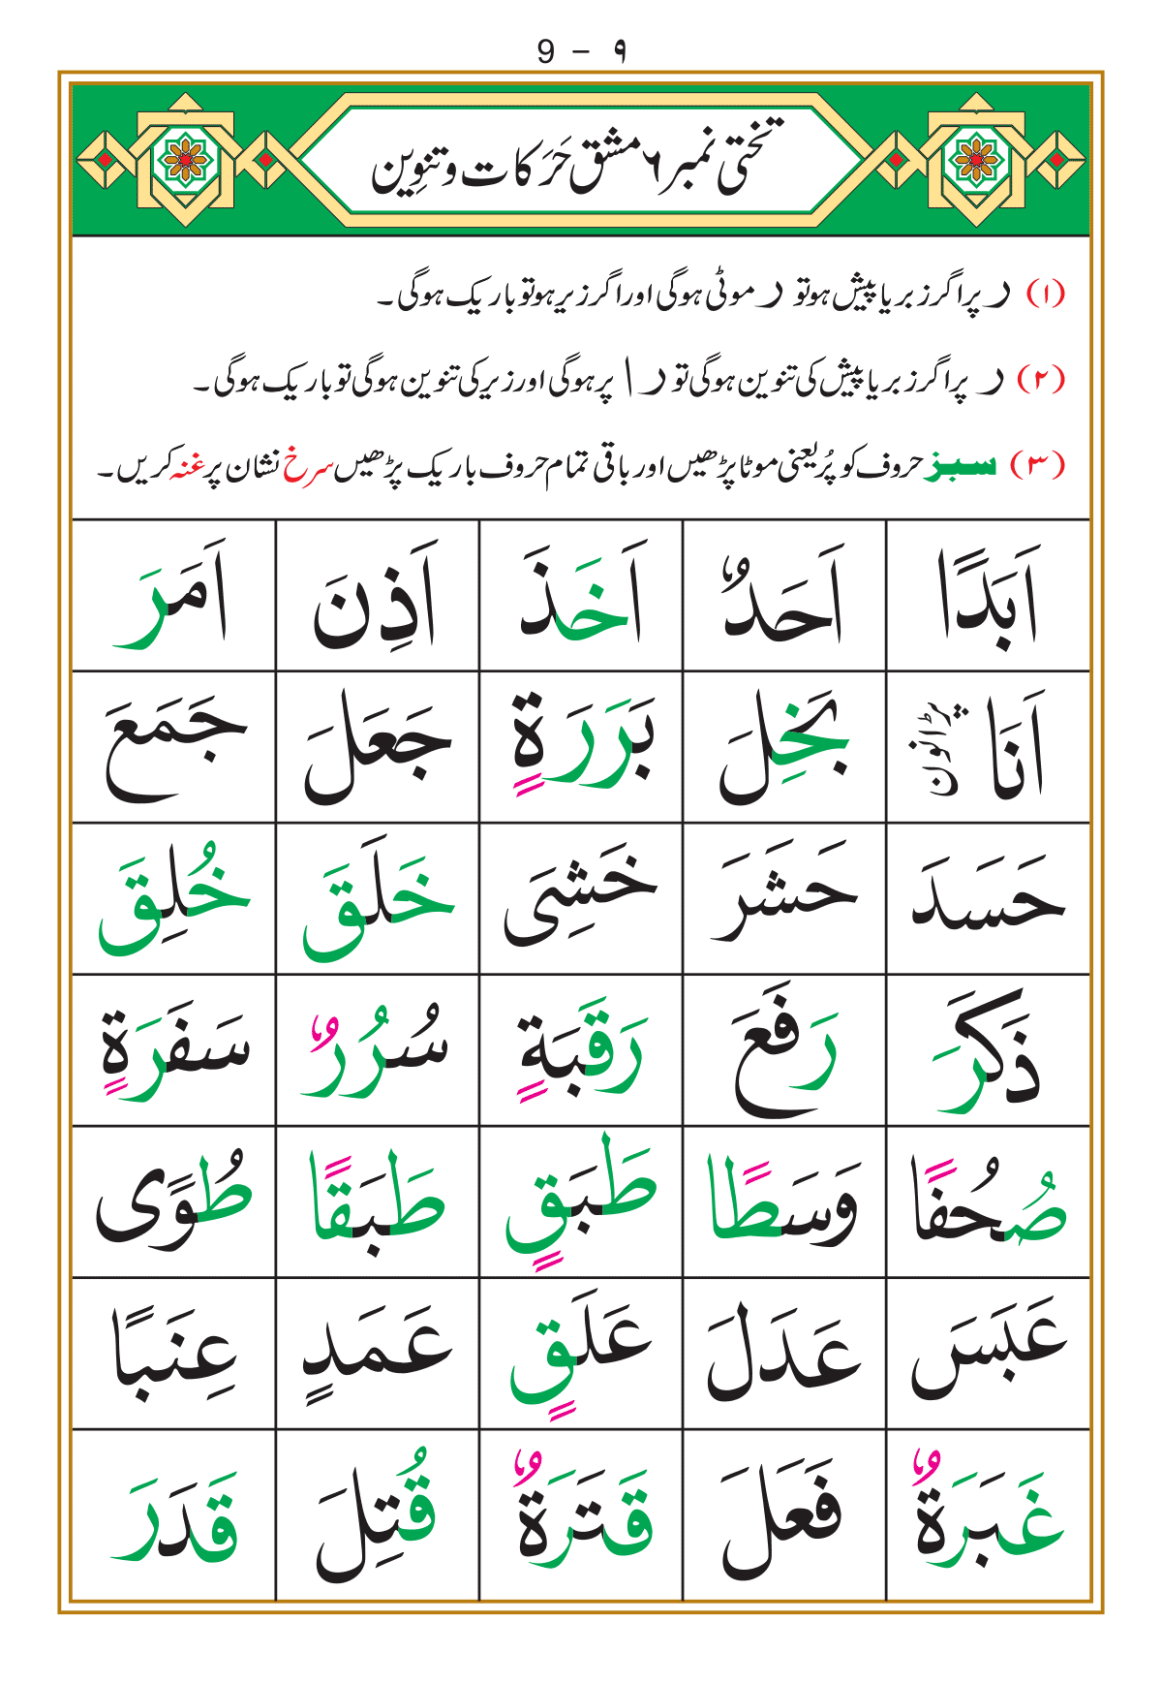 9 - ۹
تختی نمبر ۶ مشق حَرَکات و تنوِین
(۱) ر پر اگر زبر یا پیش ہو تو ر موٹی ہوگی اور اگر زیر ہو تو باریک ہوگی ۔
(۲) ر پر اگر زبر یا پیش کی تنوین ہوگی تو ر ا پر ہوگی اور زیر کی تنوین ہوگی تو باریک ہوگی ۔
(۳) سبز حروف کو پُر یعنی موٹا پڑھیں اور باقی تمام حروف باریک پڑھیں سرخ نشان پر غنہ کریں ۔
اَبَدًا اَحَدٌ اَخَذَ اَذِنَ اَمَرَ
اَنَا پڑا نون بَخِلَ بَرَرَةٍ جَعَلَ جَمَعَ
حَسَدَ حَشَرَ خَشِیَ خَلَقَ خُلِقَ
ذَكَرَ رَفَعَ رَقَبَةٍ سُرُرٌ سَفَرَةٍ
صُحُفًا وَسَطًا طَبَقٍ طَبَقًا طُوًى
عَبَسَ عَدَلَ عَلَقٍ عَمَدٍ عِنَبًا
غَبَرَةٌ فَعَلَ قَتَرَةٌ قُتِلَ قَدَرَ